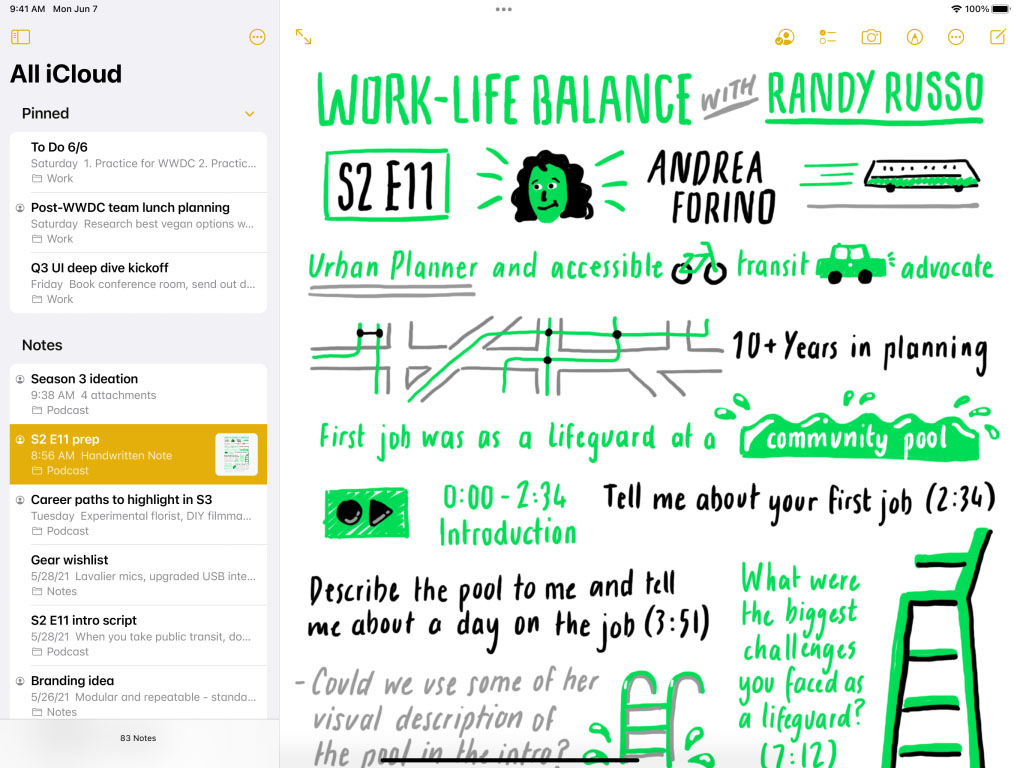 9:41 AM Mon Jun 7
100%
All iCloud
Pinned
To Do 6/6
Saturday 1. Practice for WWDC 2. Practic...
Work
Post-WWDC team lunch planning
Saturday Research best vegan options w...
Work
Q3 UI deep dive kickoff
Friday Book conference room, send out d...
Work
Notes
Season 3 ideation
9:38 AM 4 attachments
Podcast
S2 E11 prep
8:56 AM Handwritten Note
Podcast
Career paths to highlight in S3
Tuesday Experimental florist, DIY filmma...
Podcast
Gear wishlist
5/28/21 Lavalier mics, upgraded USB inte...
Notes
S2 E11 intro script
5/28/21 When you take public transit, do...
Podcast
Branding idea
5/26/21 Modular and repeatable - standa...
Notes
83 Notes
WORK-LIFE BALANCE WITH RANDY RUSSO
S2 E11
ANDREA
FORINO
Urban Planner and accessible transit advocate
10+ Years in planning
First job was as a lifeguard at a community pool
0:00 - 2:34
Introduction
Tell me about your first job (2:34)
Describe the pool to me and tell
me about a day on the job (3:51)
- Could we use some of her
visual description of
the pool in the intro?
What were
the biggest
challenges
you faced as
a lifeguard?
(7:12)